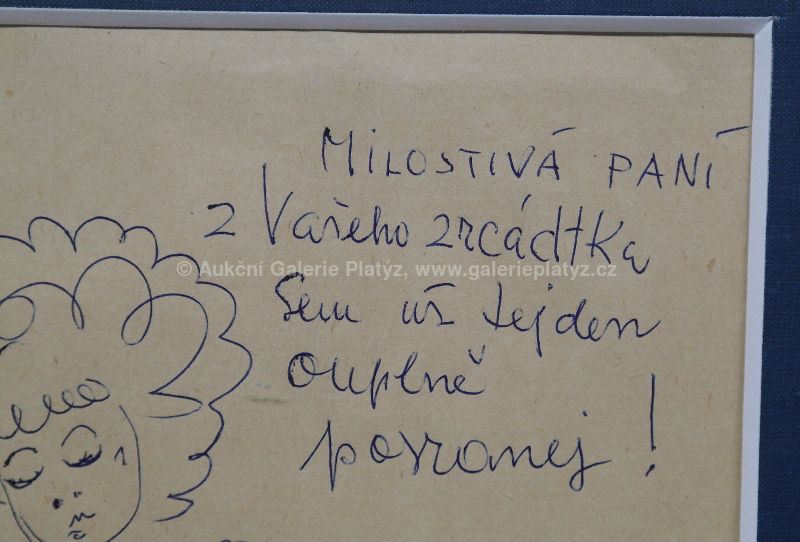 MILOSTIVÁ PANÍ
z Vašeho zrcádtka
© Aukční Galerie Platýz, www.galerieplatyz.cz
Sem už tejden
ouplně
!